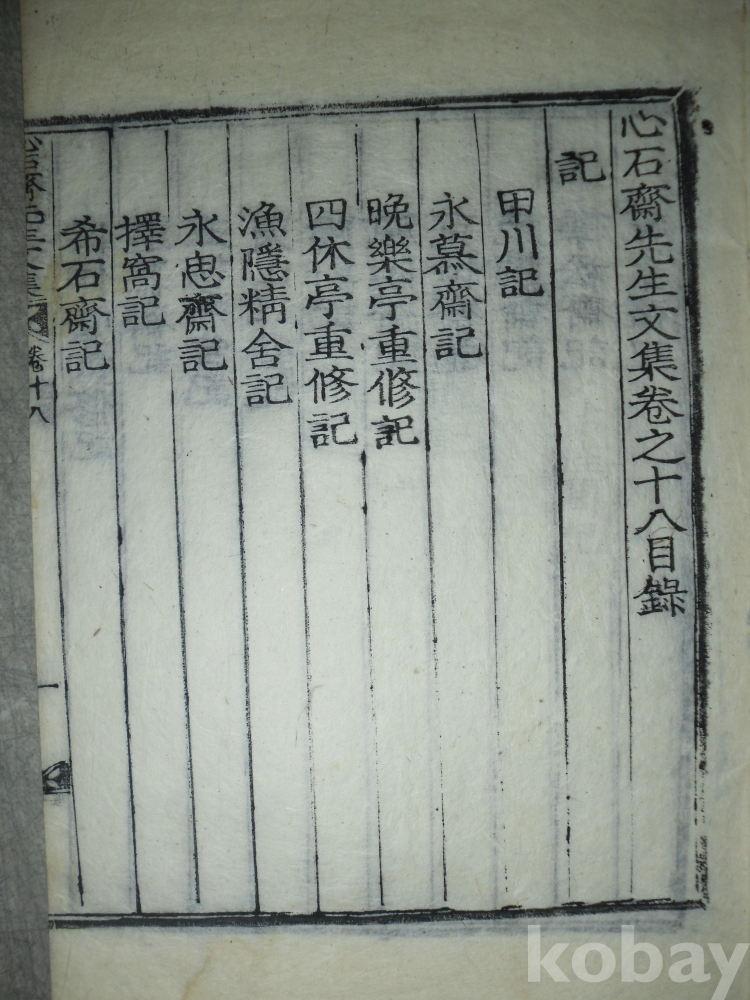 心石齋先生文集卷之十八目錄
記
甲川記
永慕齋記
晩樂亭重修記
四休亭重修記
漁隱精舍記
永思齋記
擇窩記
希石齋記
心石齋先生文集
卷十八
一
kobay